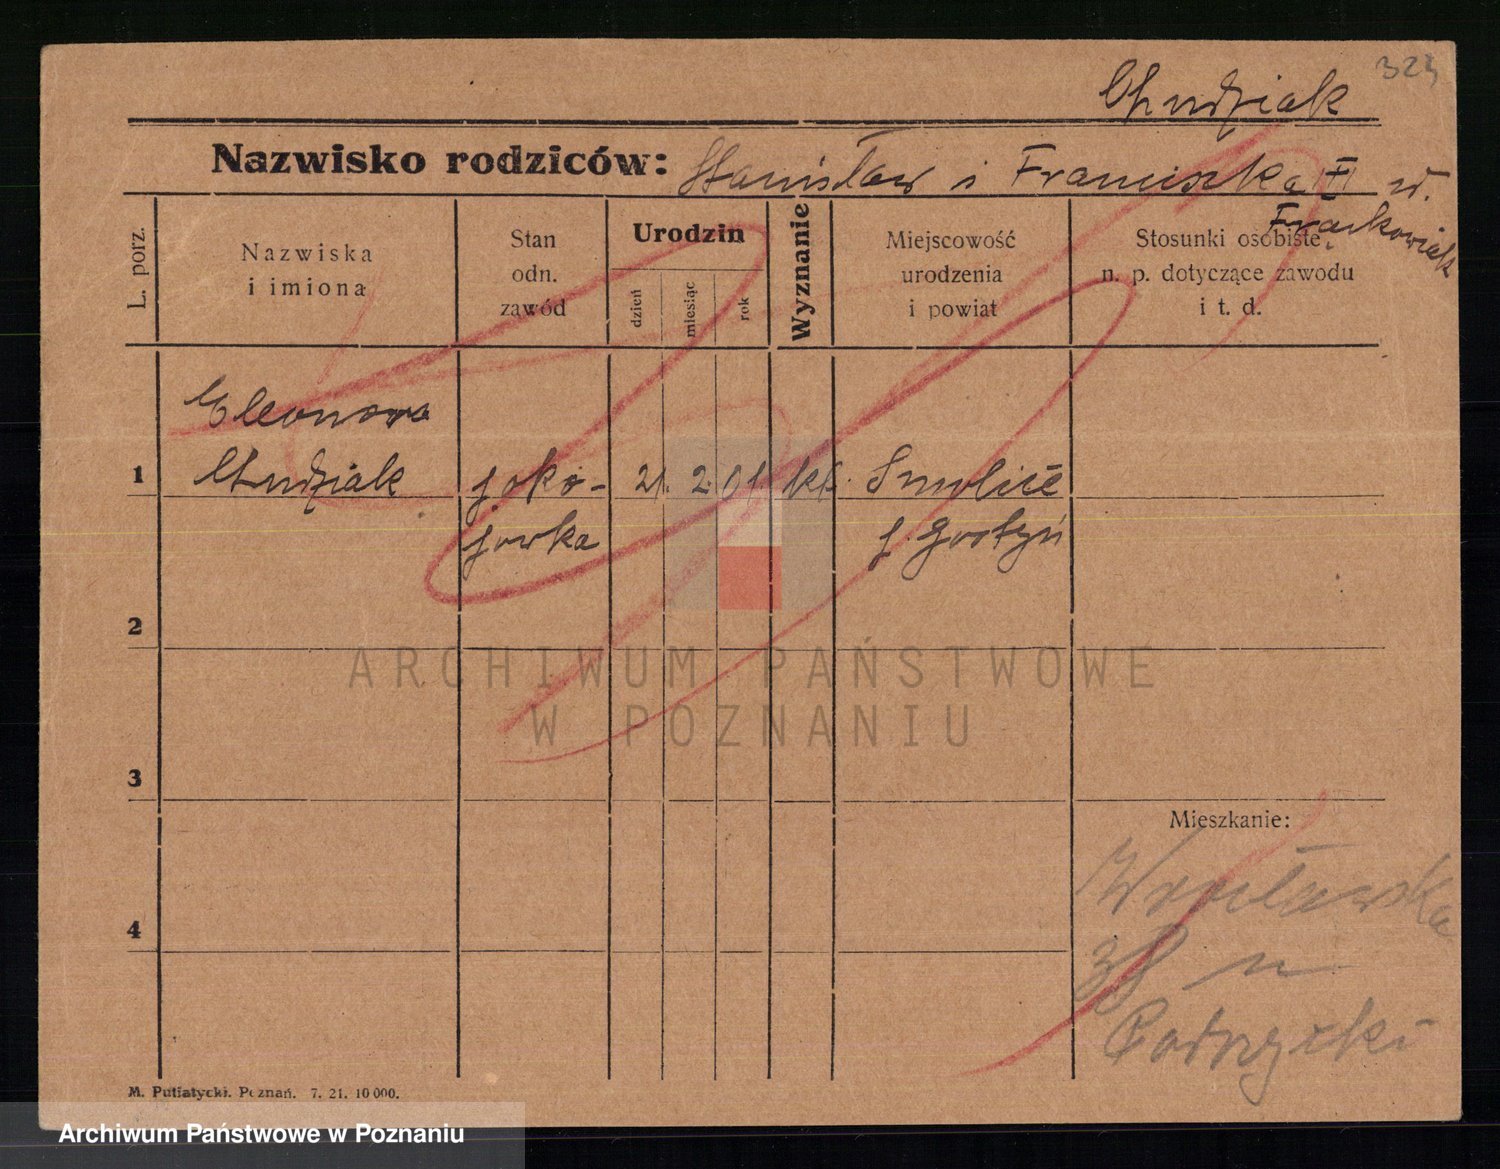 323
Chudziak
Nazwisko rodziców: Stanisław i Franciszka
Frankowiak
L. porz.
Nazwiska
i imiona
Stan
odn.
zawód
Urodzin
dzień
miesiąc
rok
Wyznanie
Miejscowość
urodzenia
i powiat
Stosunki osobiste,
n. p. dotyczące zawodu
i t. d.
Eleonora
1 Chudziak poko- 21. 2. 01. kt. Smolice
jowka p. Gostyń
2
3
4
Mieszkanie:
Wrocławska
38 u
M. Putiatycki. Poznań. 7. 21. 10 000.
ARCHIWUM PAŃSTWOWE
W POZNANIU
Archiwum Państwowe w Poznaniu